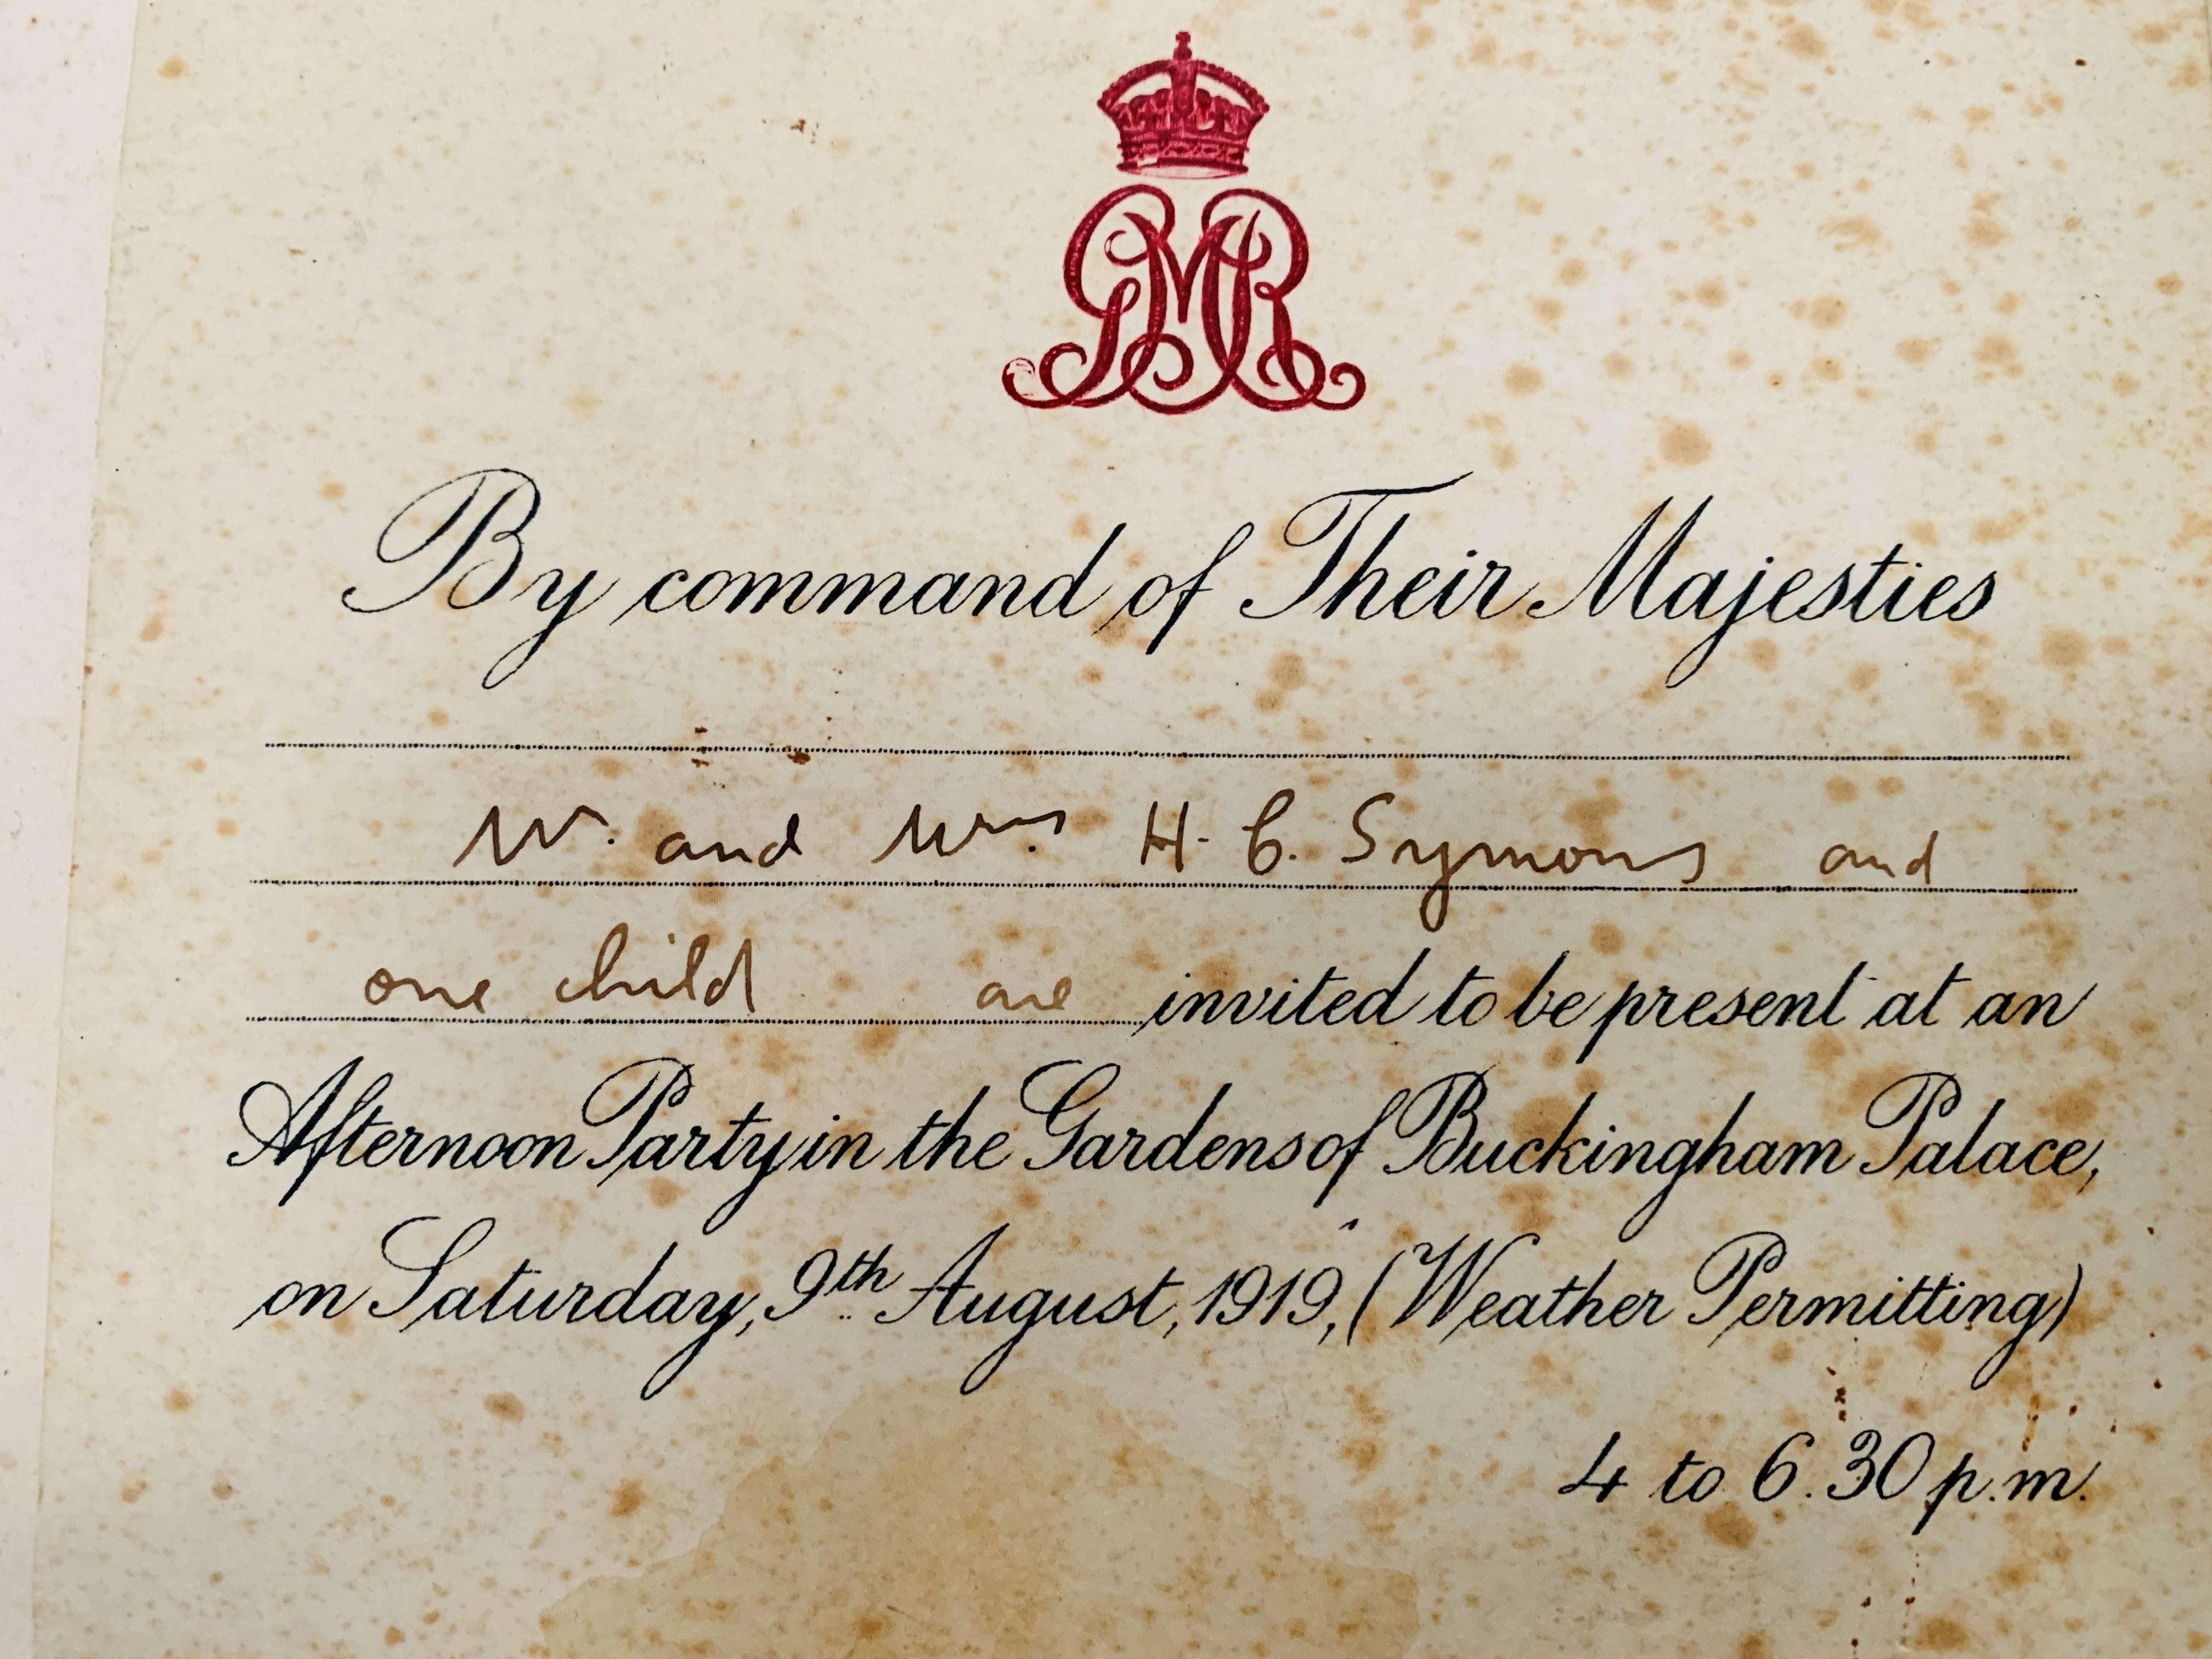 GMR
By command of Their Majesties
Mr. and Mrs. H. C. Symons and
one child are invited to be present at an
Afternoon Party in the Gardens of Buckingham Palace,
on Saturday, 9th August, 1919, (Weather Permitting)
4 to 6.30 p.m.